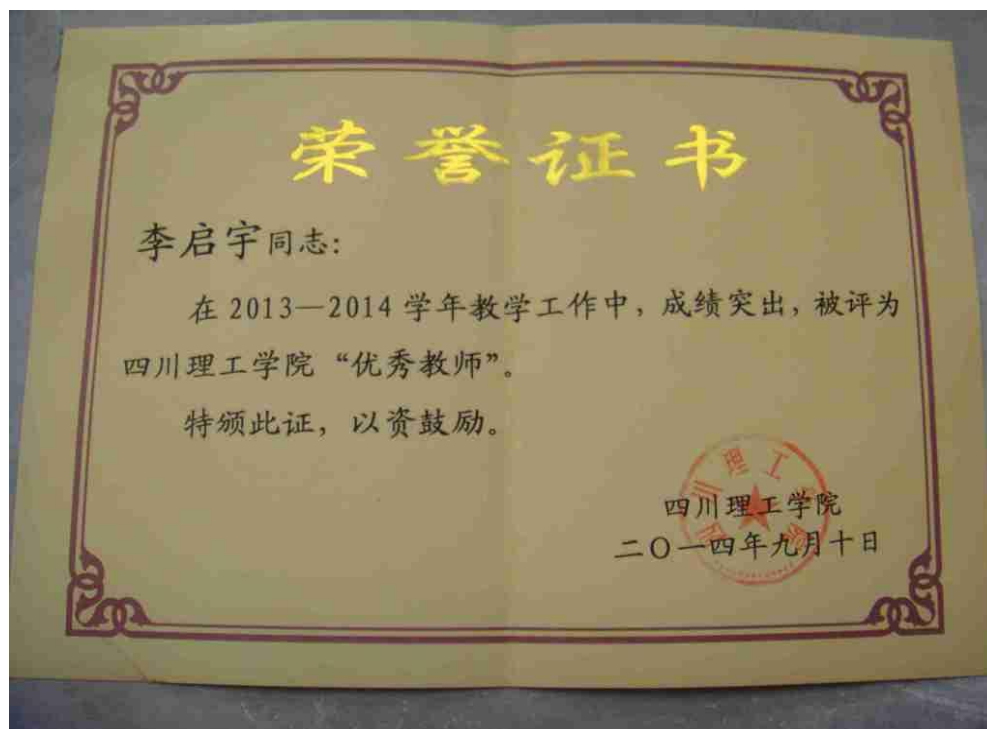 荣誉证书
李启宇同志：
在2013—2014学年教学工作中，成绩突出，被评为
四川理工学院“优秀教师”。
特颁此证，以资鼓励。
四川理工学院
二〇一四年九月十日